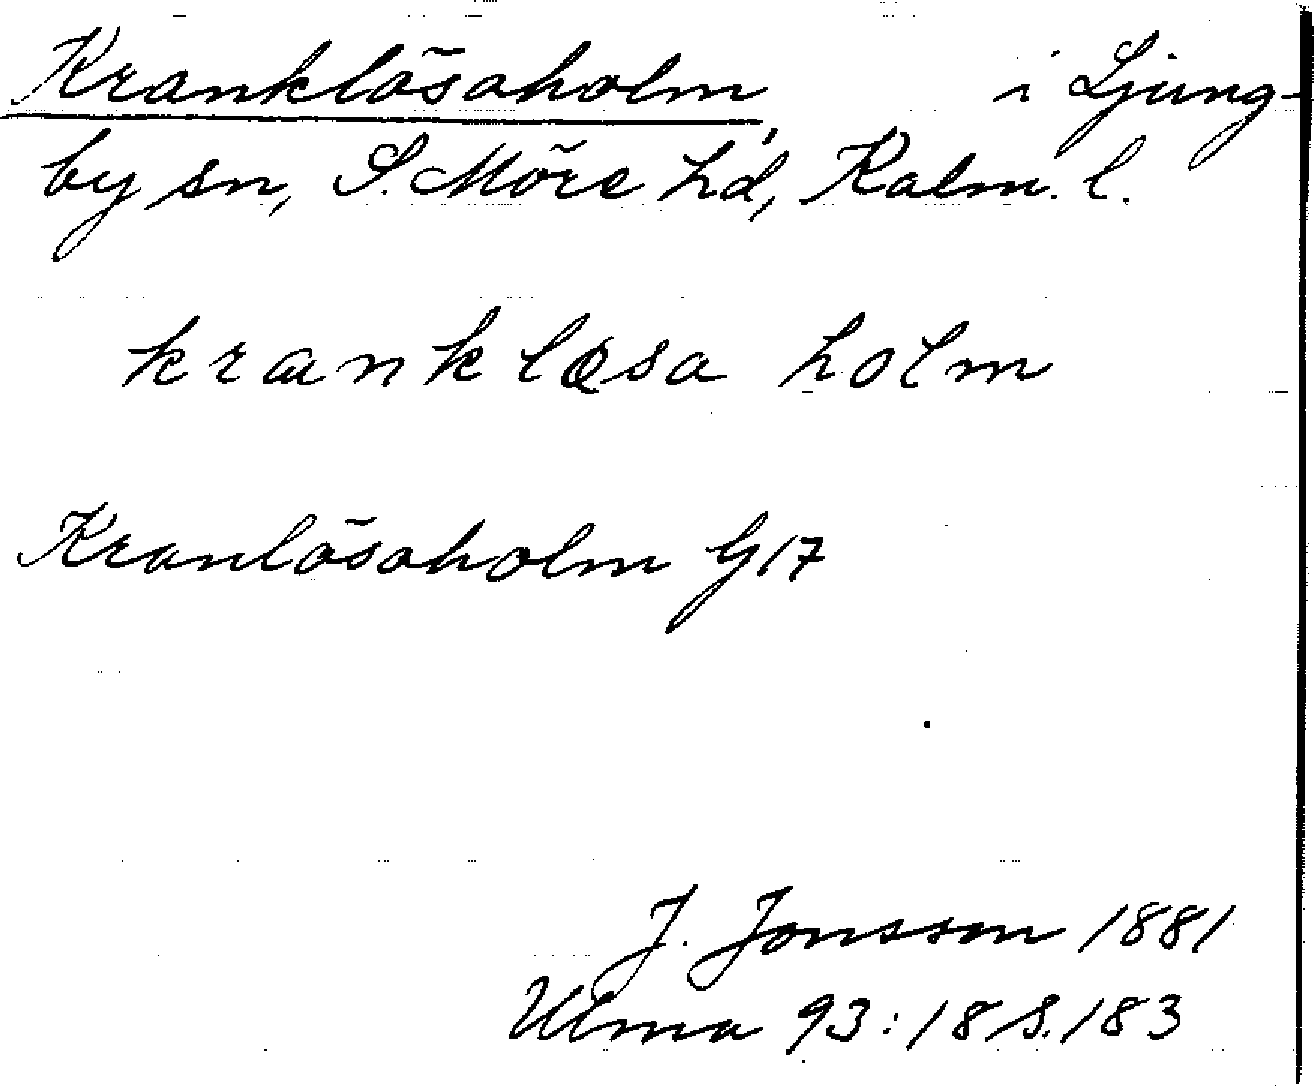 Kranklösaholm, i Ljung-
by sn, S. Möre hd, Kalm. l.
krank løsa holm
Kranlösaholm G17
J. Jonsson 1881
Ulma 93:18 S. 183